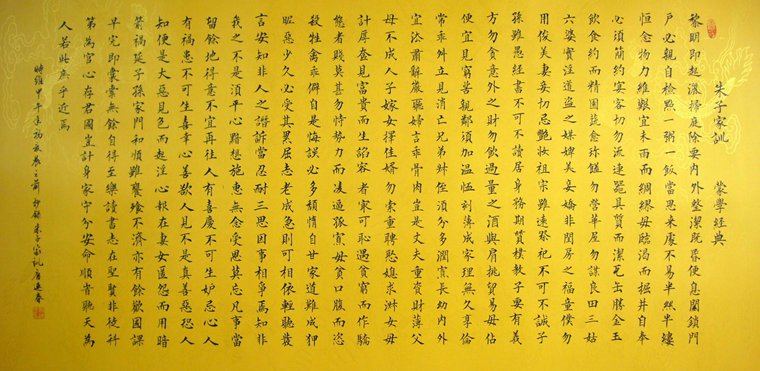 朱子家訓 蒙學經典
黎明即起灑掃庭除要內外整潔既昏便息關鎖門
戶必親自檢點一粥一飯當思來處不易半絲半縷
恒念物力維艱宜未雨而綢繆毋臨渴而掘井自奉
必須簡約宴客切勿流連器具質而潔瓦缶勝金玉
飲食約而精園蔬愈珍饈勿營華屋勿謀良田三姑
六婆實淫盜之媒婢美妾嬌非閨房之福童僕勿
用俊美妻妾切忌艷妝祖宗雖遠祭祀不可不誠子
孫雖愚經書不可不讀居身務期質樸教子要有義
方勿貪意外之財勿飲過量之酒與肩挑貿易毋佔
便宜見窮苦親鄰須加溫恤刻薄成家理無久享倫
常乖舛立見消亡兄弟叔侄須分多潤寡長幼內外
宜法肅辭嚴聽婦言乖骨肉豈是丈夫重資財薄父
母不成人子嫁女擇佳婿勿索重聘娶媳求淑女毋
計厚奩見富貴而生諂容者最可恥遇貧窮而作驕
態者賤莫甚勿恃勢力而凌逼孤寡毋貪口腹而恣
殺牲禽乖僻自是悔誤必多頹惰自甘家道難成狎
昵惡少久必受其累屈志老成急則可相依輕聽發
言安知非人之譖訴當忍耐三思因事相爭焉知非
我之不是須平心暗想施惠無念受恩莫忘凡事當
留餘地得意不宜再往人有喜慶不可生妒忌心人
有禍患不可生喜幸心善欲人見不是真善惡恐人
知便是大惡見色而起淫心報在妻女匿怨而用暗
箭禍延子孫家門和順雖饔飧不濟亦有餘歡國課
早完即囊橐無餘自得至樂讀書志在聖賢非徒科
第為官心存君國豈計身家守分安命順時聽天為
人若此庶乎近焉
時維甲午年初秋之前抄錄朱子家訓